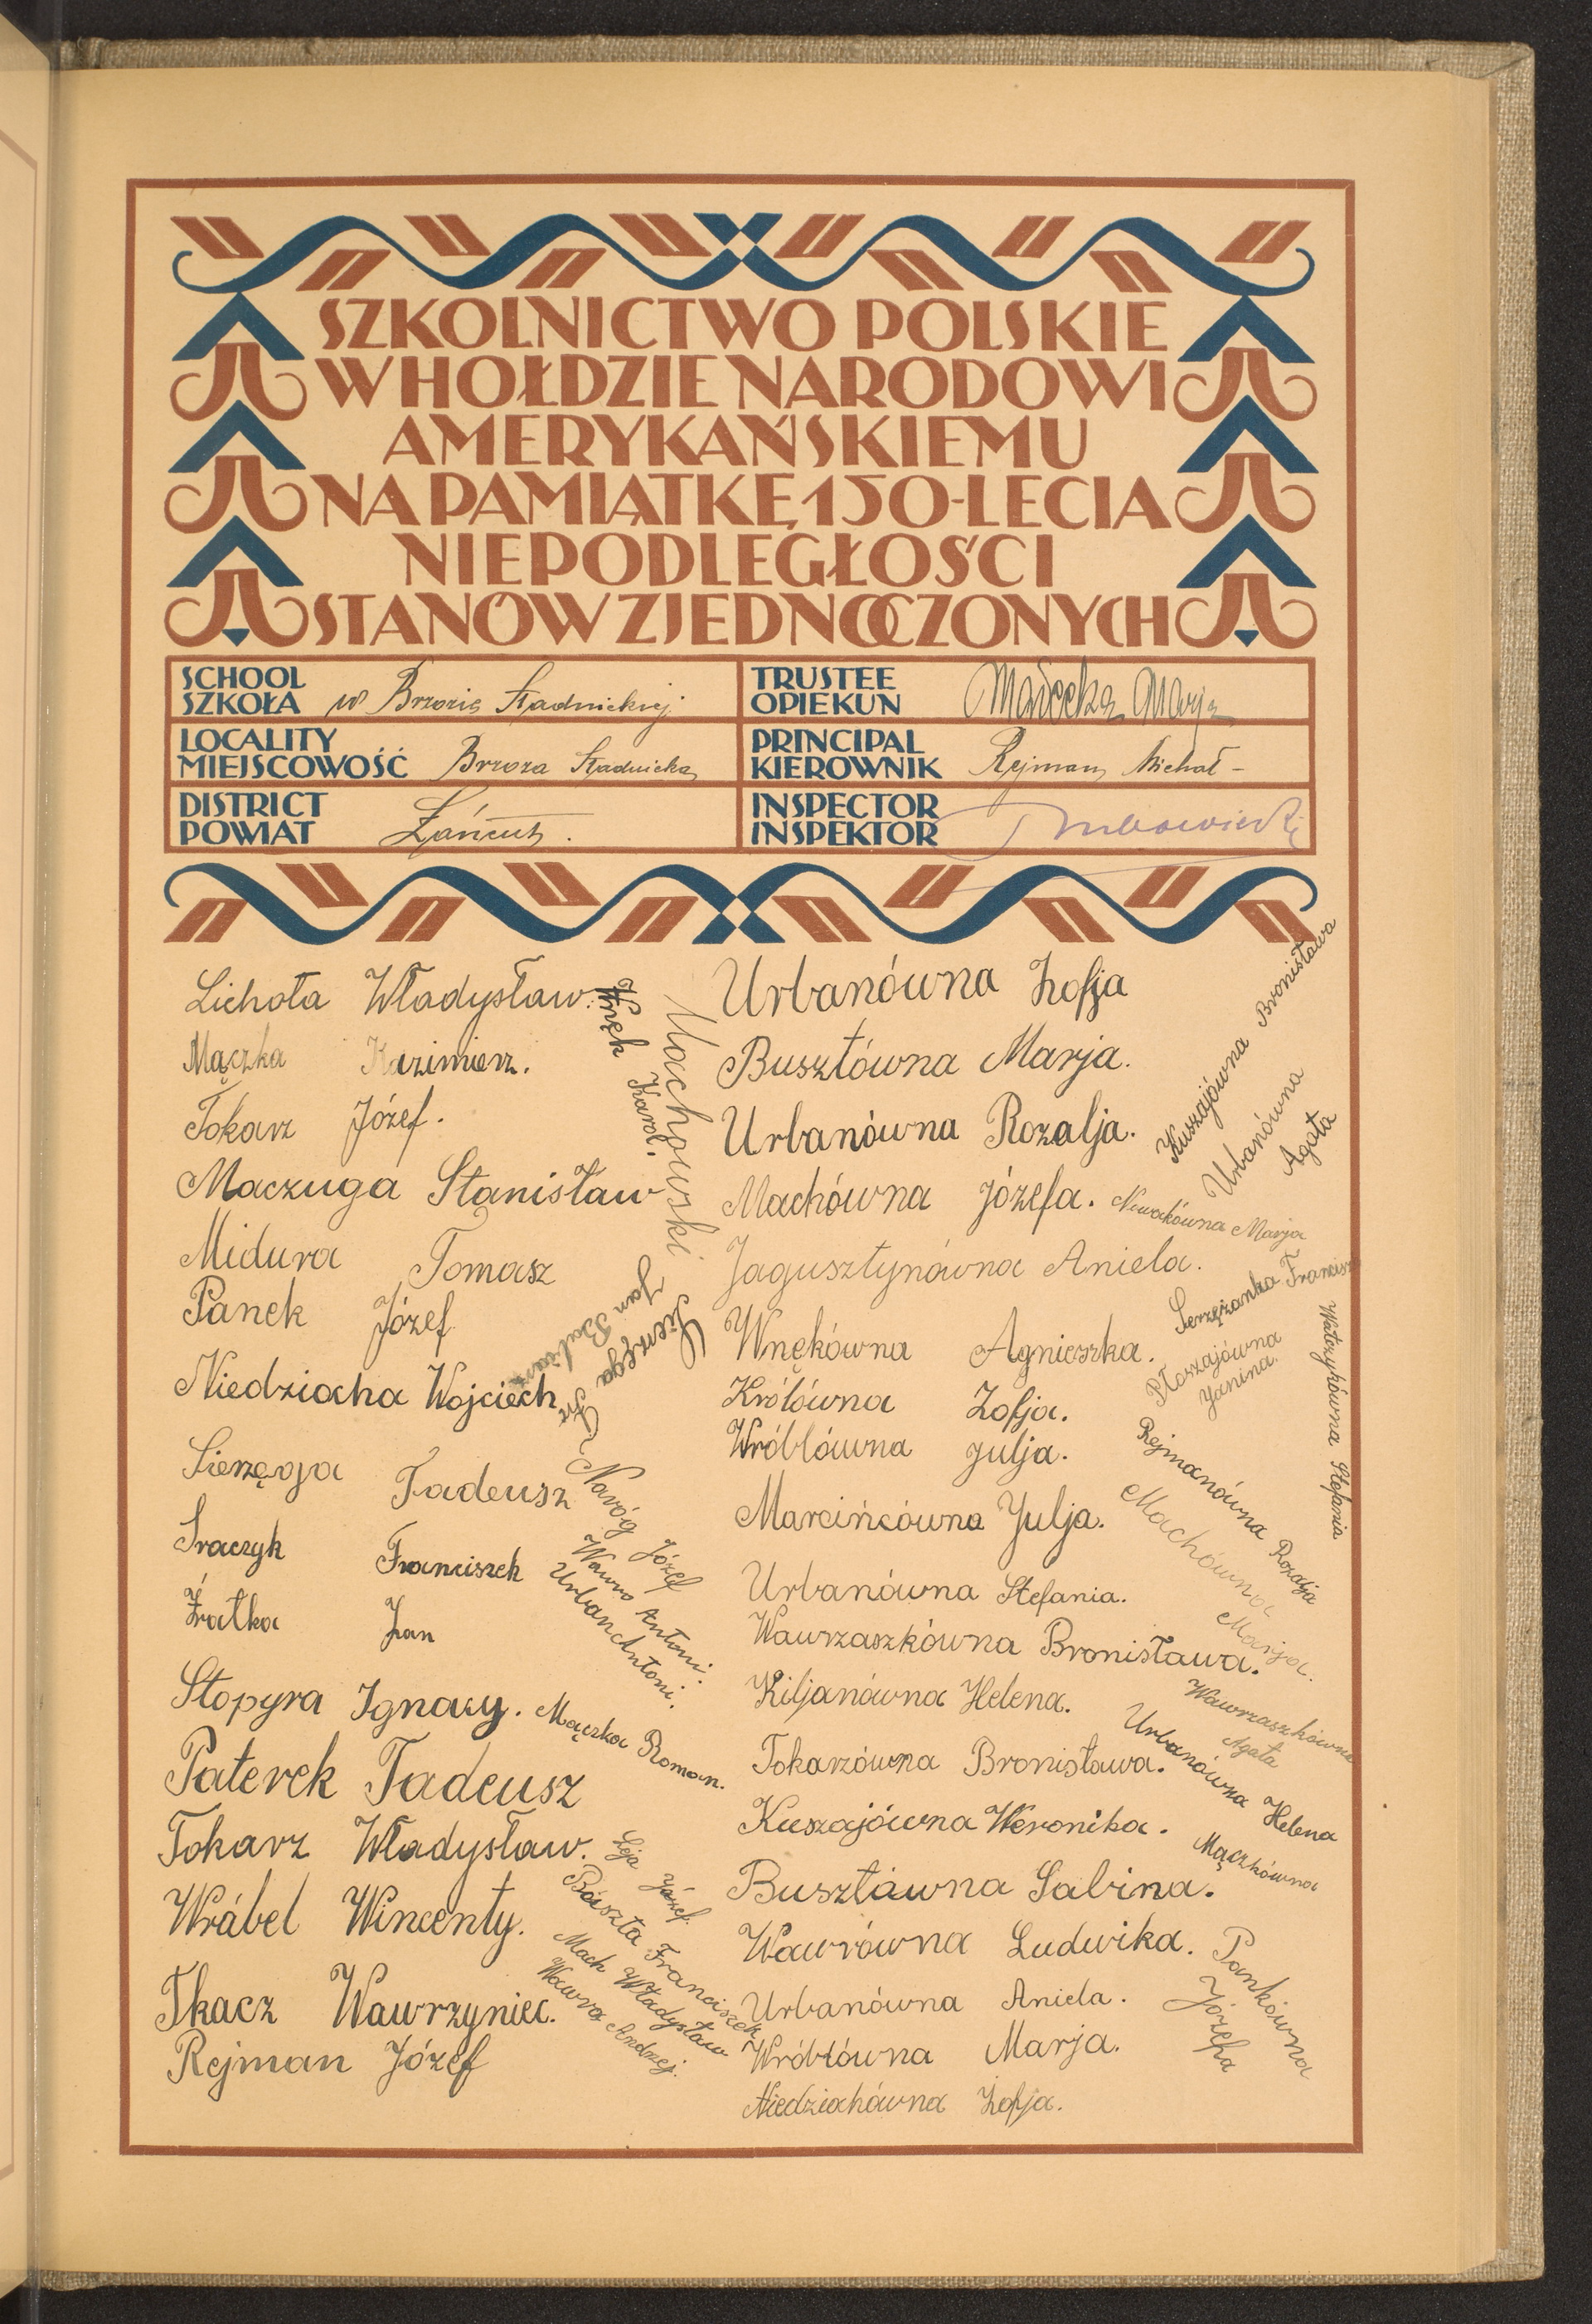 SZKOLNICTWO POLSKIE
W HOŁDZIE NARODOWI
AMERYKAŃSKIEMU
NA PAMIĄTKĘ 150-LECIA
NIEPODLEGŁOŚCI
STANÓW ZJEDNOCZONYCH
SCHOOL
SZKOŁA w Brzozie Stadnickiej
TRUSTEE
OPIEKUN Marja
LOCALITY
MIEJSCOWOŚĆ Brzoza Stadnicka
PRINCIPAL
KIEROWNIK Rejman Michał -
DISTRICT
POWIAT Łańcut.
INSPECTOR
INSPEKTOR
Lichota Władysław.
Mączka Kazimierz.
Tokarz Józef.
Maczuga Stanisław
Midura Tomasz
Panek Józef
Niedziocha Wojciech
Sierzęga Tadeusz
Sraczyk Franciszek
Żratka Jan
Stopyra Ignacy.
Paterek Tadeusz
Tokarz Władysław.
Wrábel Wincenty.
Tkacz Wawrzyniec.
Rejman Józef
Wnęk Karol.
Machowski
Jan
Sierzęga Fr
Naróg Józef
Wawro Antoni.
Urban Antoni.
Mączka Roman.
Leja Józef.
Franciszek
Mach Władysław
Wawro Andrzej.
Urbanówna Zofja
Busztówna Marja.
Urbanówna Rozalja.
Machówna Józefa.
Jagusztynówna Aniela.
Wnękówna Agnieszka.
Królówna Zofja.
Wróblówna Julja.
Marcińcówna Julja.
Urbanówna Stefania.
Wawrzaszkówna Bronisława.
Kiljanówna Helena.
Tokarzówna Bronisława.
Kuszajówna Weronika.
Busztówna Sabina.
Wawrówna Ludwika.
Urbanówna Aniela.
Wróblówna Marja.
Niedziochówna Zofja.
Kuszajówna Bronisława
Urbanówna
Agata
Nowakówna Marja
Sierzężanka
Płoszajówna
Janina.
Watrzykówna Stefania
Rejmanówna Rozalja
Machówna
Marja.
Wawrzaszkówna
Agata
Urbanówna Helena
Mączkówna
Pankówna
Józefa